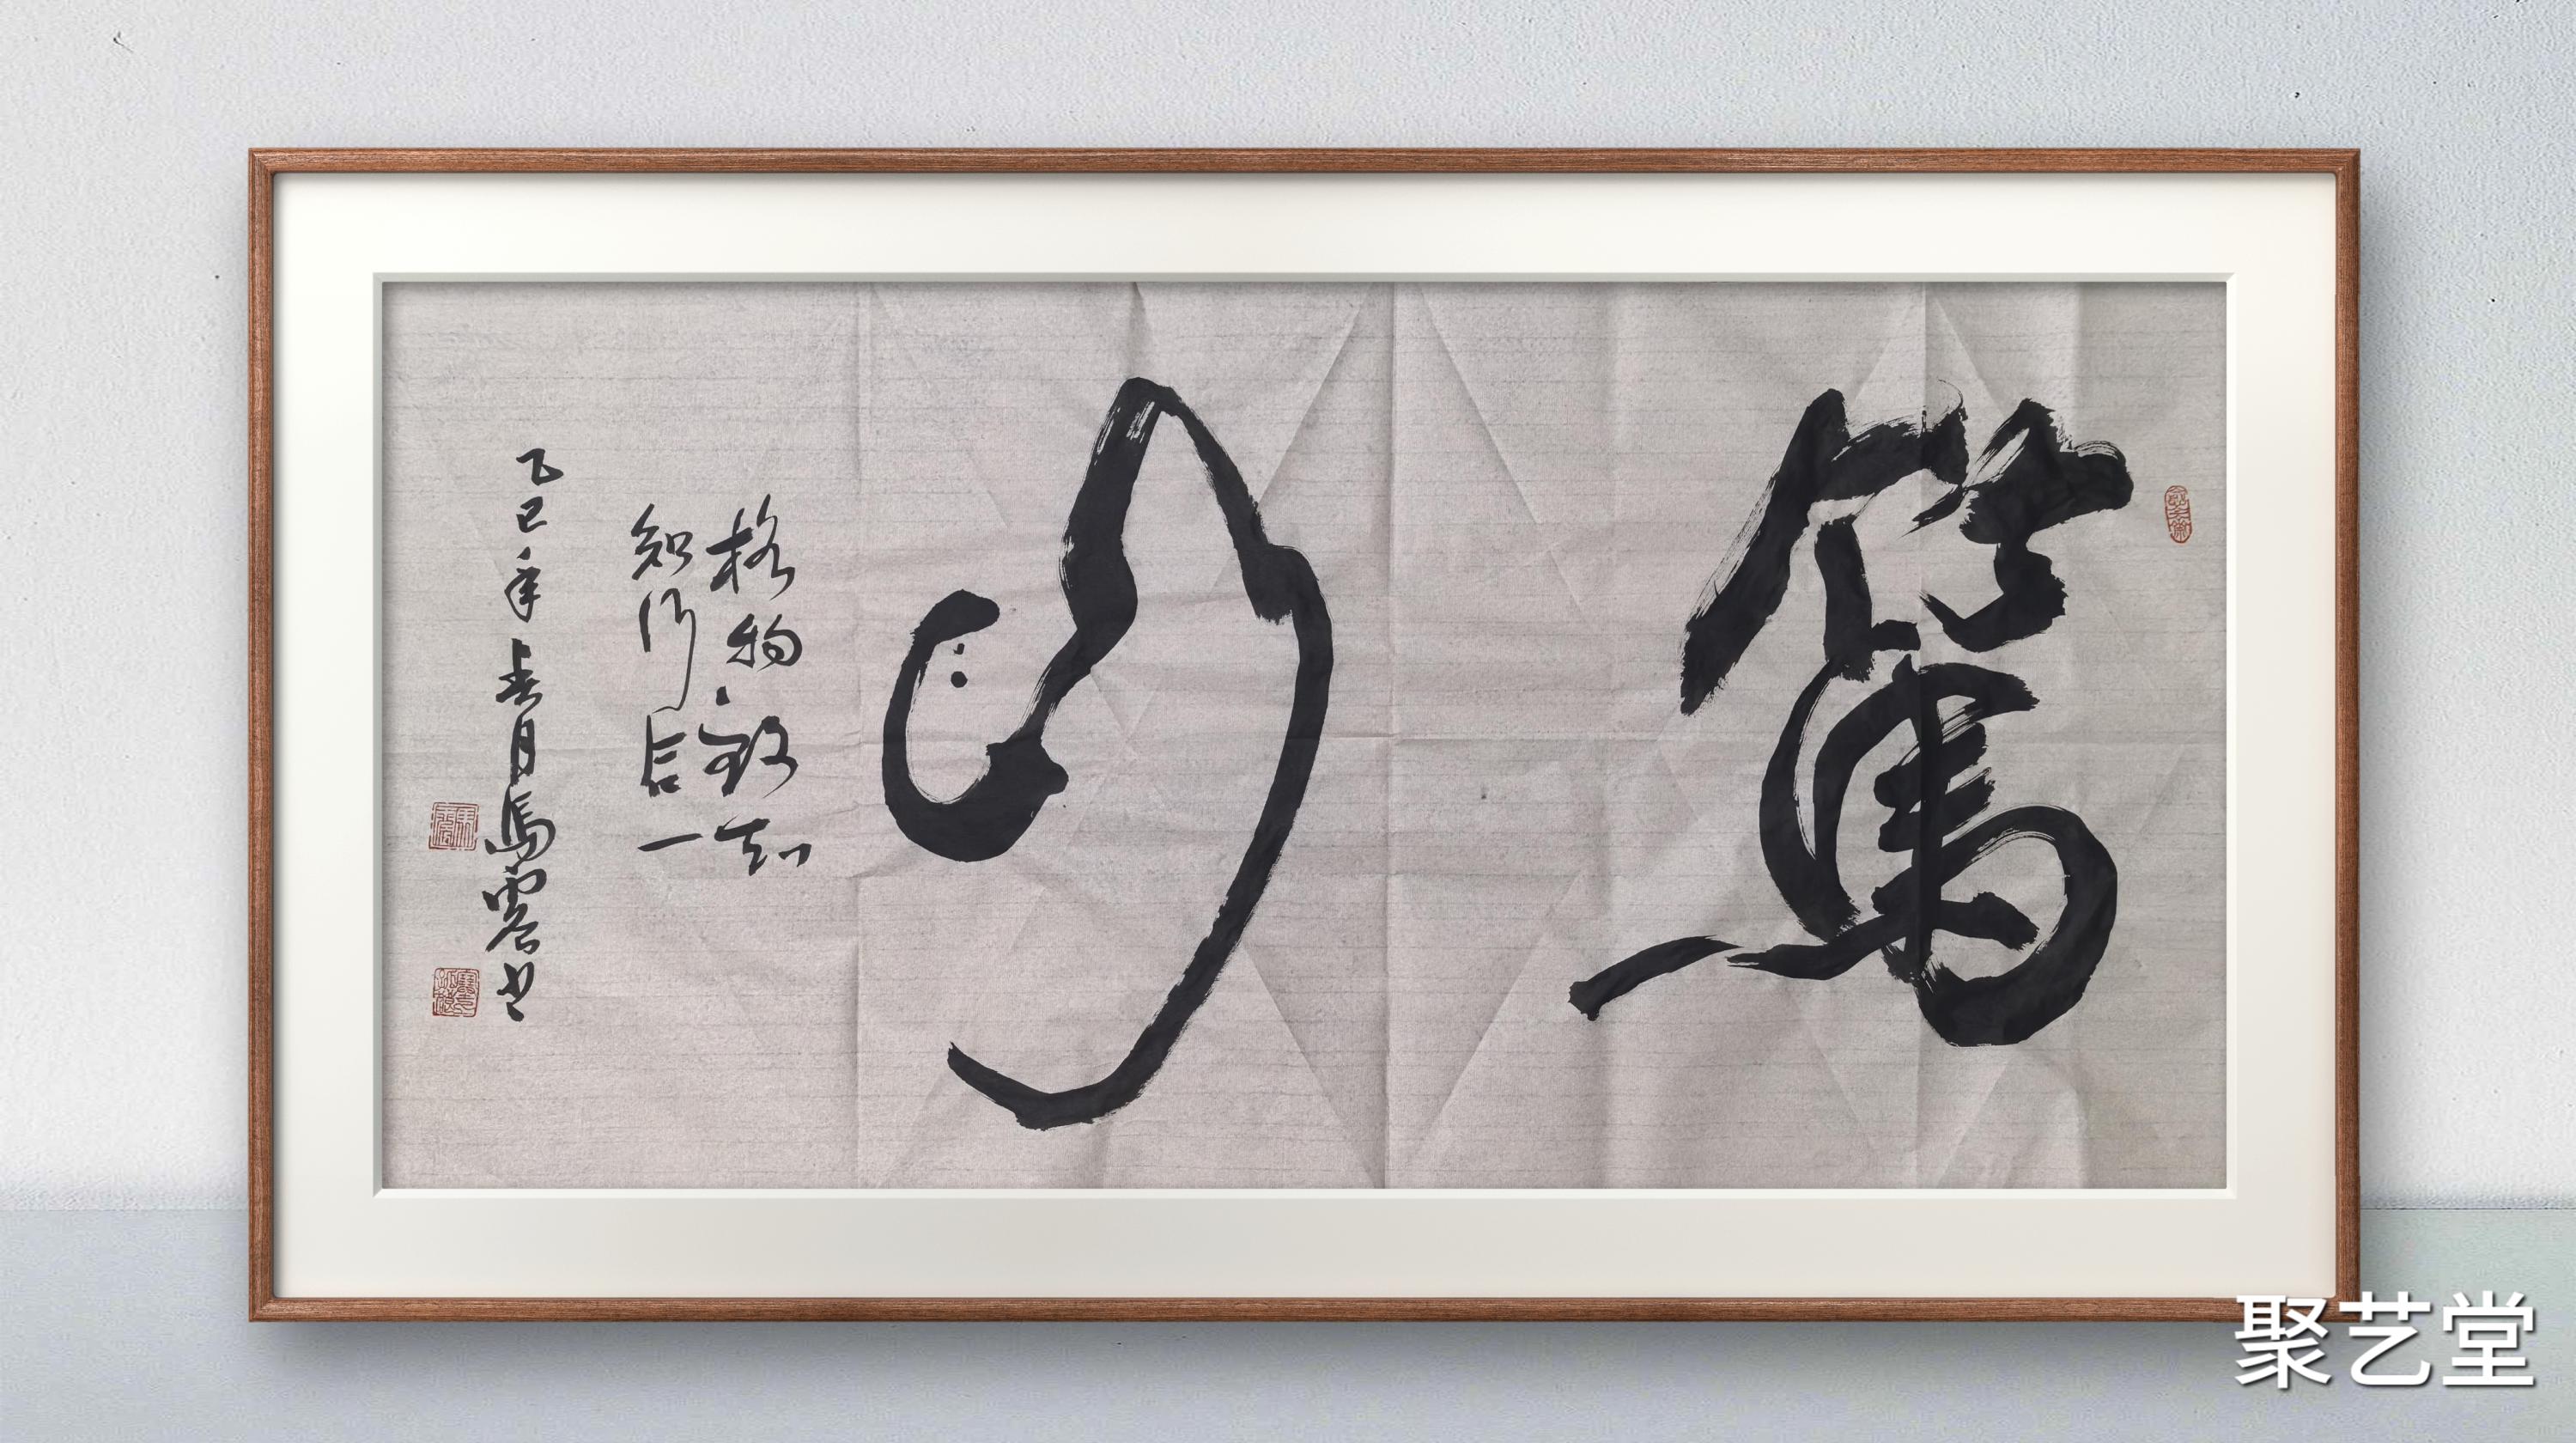 篤行
格物致知
知行合一
乙巳年春月馬雲書
聚艺堂